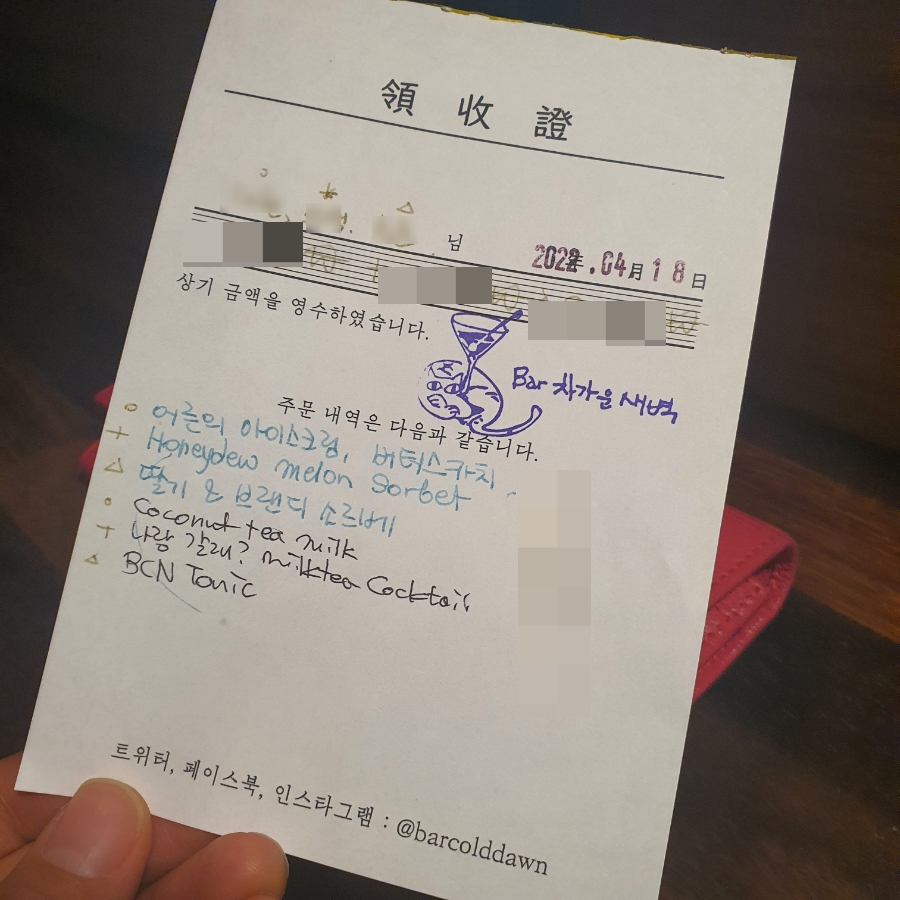 領 收 證
님
2022年.04月18日
상기 금액을 영수하였습니다.
Bar 차가운 새벽
주문 내역은 다음과 같습니다.
어른의 아이스크림, 버터스카치.
Honeydew melon Sorbet
딸기 & 브랜디 소르베
Coconut tea milk
나랑 갈래? milktea Cocktail
BCN Tonic
트위터, 페이스북, 인스타그램 : @barcolddawn